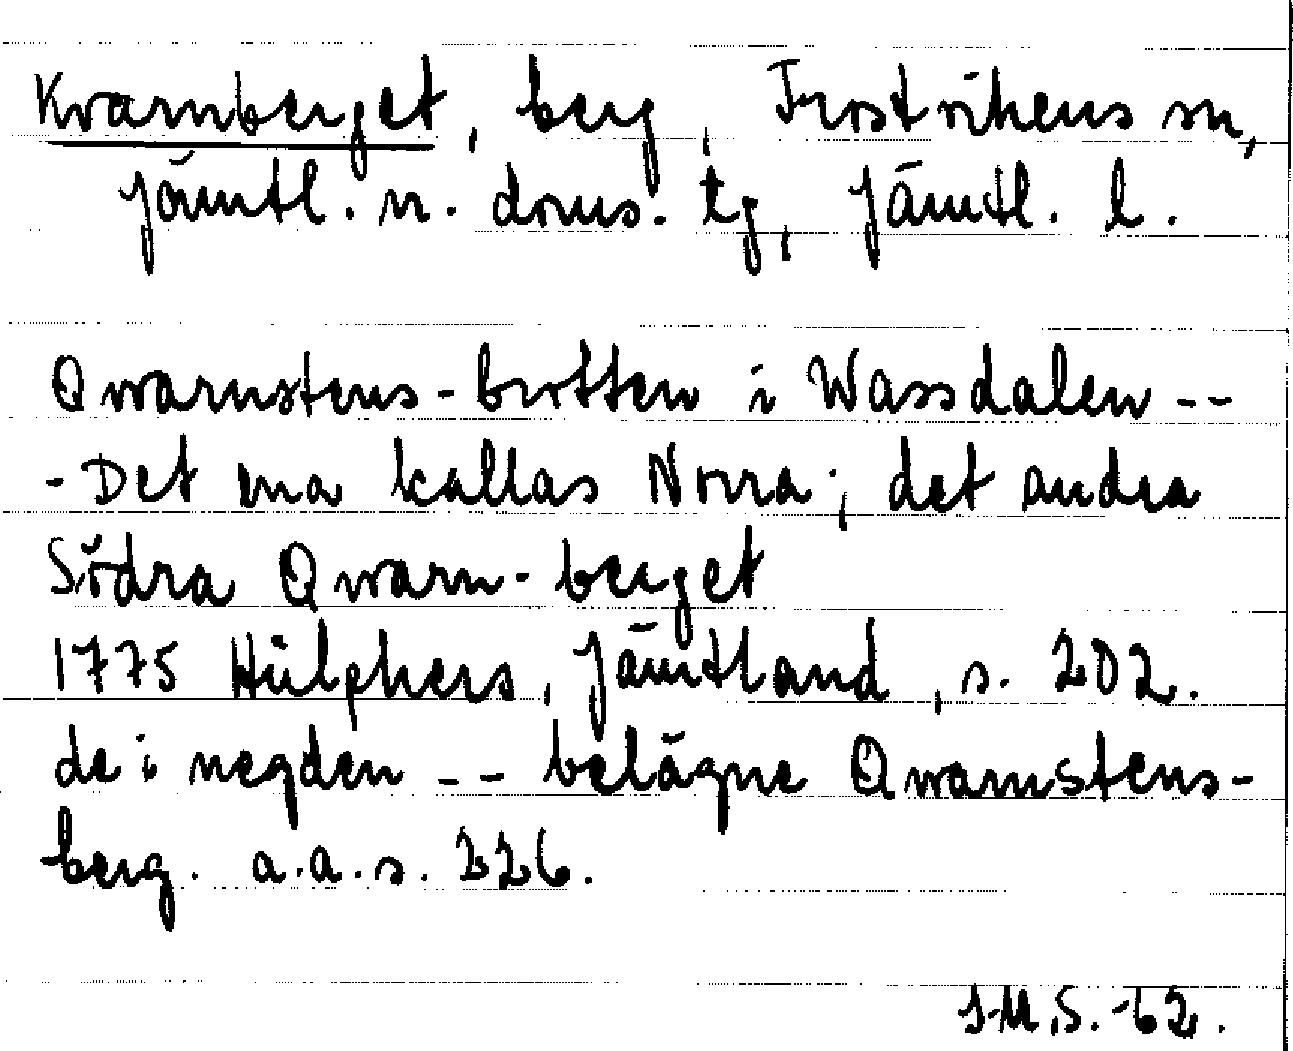 Kvarnberget, berg, Frostvikens sn,
Jämtl. n. doms. tg, Jämtl. l.
Qwarnstens-brotten i Wassdalen --
- Det ena kallas Norra; det andra
Södra Qwarn-berget
1775 Hülphers, Jämtland, s. 202.
de i negden -- belägne Qwarnstens-
berg. a.a.s. 226.
J.M.S. -62.